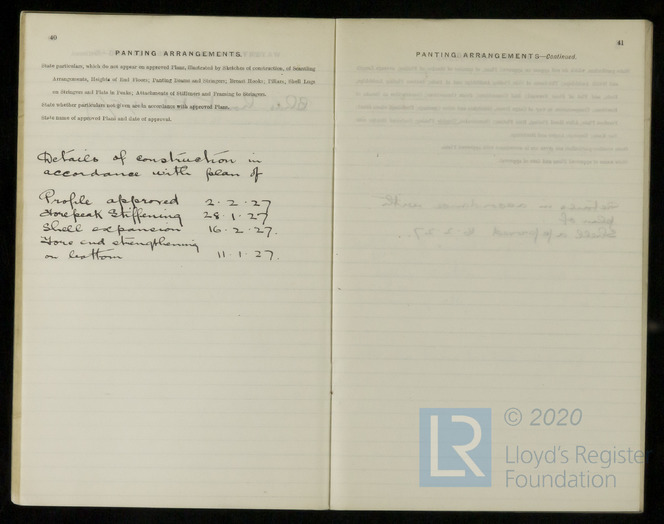 40
PANTING ARRANGEMENTS
State particulars, which do not appear on approved Plans, illustrated by Sketches of construction, of
Arrangements, Heights of Peak Floors; Panting Beams and Stringers; Breast Hooks; Pillars, Shell Lugs
on Stringers and Flats in Peaks; Attachments of Stiffeners and Framing to Stringers.
State whether particulars not given are in accordance with approved Plans.
State name of approved Plans and date of approval.
Details of construction in
accordance with plan of
Profile approved 2.2.27
Forepeak Stiffening 28.1.27
Shell expansion 16.2.27.
Fore end strengthening
on bottom 11.1.27.
41
PANTING ARRANGEMENTS—Continued.
LR
© 2020
Lloyd's Register
Foundation